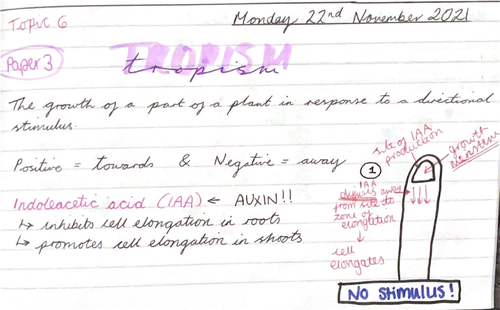 Topic 6
Monday 22nd November 2021
Paper 3
TROPISM
tropism
The growth of a part of a plant in response to a directional
stimulus.
Positive = towards & Negative = away
Indoleacetic acid (IAA) ← AUXIN!!
↳ inhibits cell elongation in roots
↳ promotes cell elongation in shoots
site of IAA
production
growth
①
IAA
away
from site to
zone of
elongation
↓
cell
elongates
NO STIMULUS!